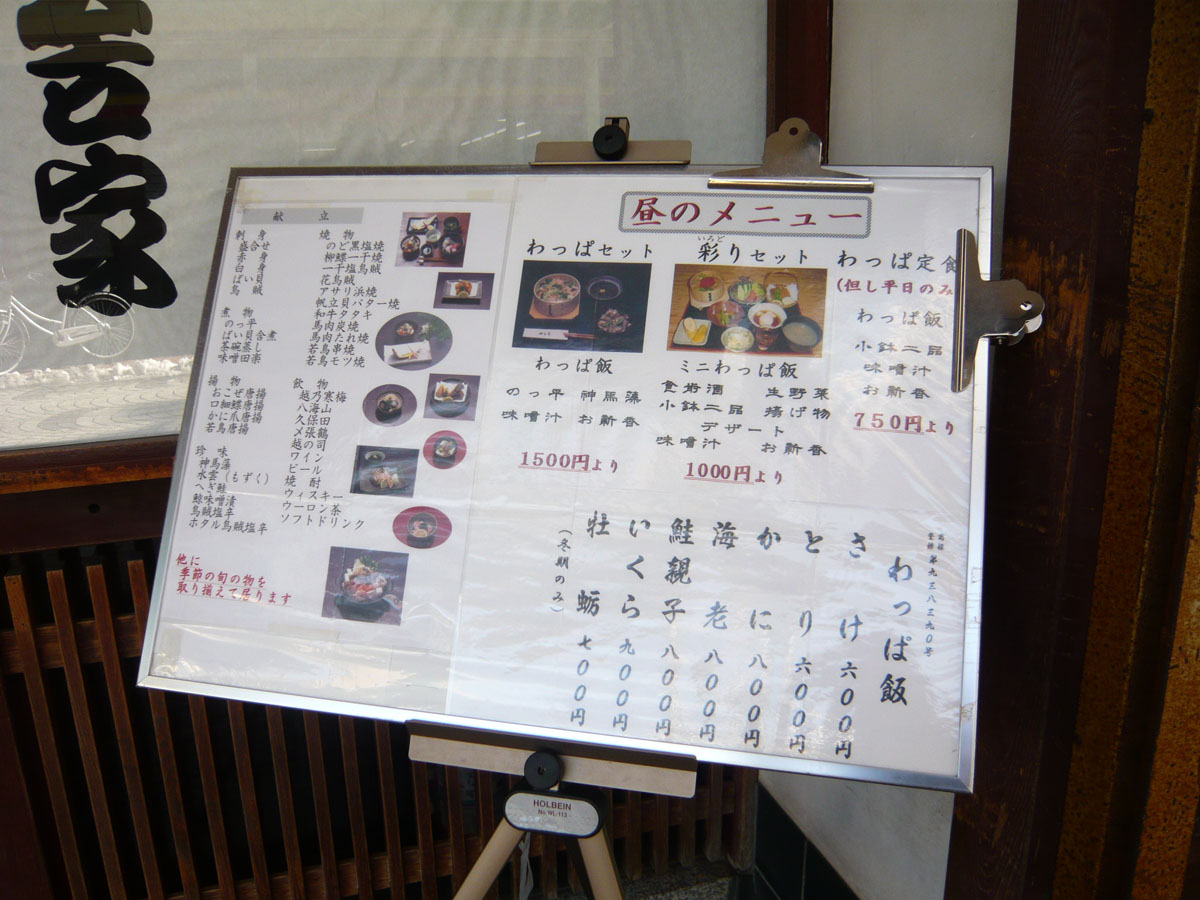 家
献 立
刺 身
盛合せ
赤 身
白 身
ばい貝
烏 賊
煮 物
のっ平
ばい貝含煮
茶碗蒸し
味噌田楽
焼 物
のど黒塩焼
柳鰈一干焼
一干塩烏賊
花烏賊
アサリ浜焼
帆立貝バター焼
和牛タタキ
馬肉炭焼
馬肉たれ焼
若鳥串焼
若鳥モツ焼
揚 物
おこぜ唐揚
口細鰈唐揚
かに爪唐揚
若鳥唐揚
珍 味
神馬藻
水雲(もずく)
へぎ鮭
鯨味噌漬
烏賊塩辛
ホタル烏賊塩辛
飲 物
越乃寒梅
八海山
久保田
〆張鶴
越の司
ワイン
ビール
焼 酎
ウィスキー
ウーロン茶
ソフトドリンク
他に
季節の旬の物を
取り揃えて居ります
昼のメニュー
わっぱセット
わっぱ飯
のっ平 神馬藻
味噌汁 お新香
1500円より
いろど
彩りセット
ミニわっぱ飯
食前酒 生野菜
小鉢二品 揚げ物
デザート
味噌汁 お新香
1000円より
わっぱ定食
(但し平日のみ
わっぱ飯
小鉢二品
味噌汁
お新香
750円より
登録 第九三八三九〇号
わっぱ飯
さけ 六〇〇円
とり 六〇〇円
かに 八〇〇円
海老 八〇〇円
鮭親子 八〇〇円
いくら 九〇〇円
牡蛎 七〇〇円
(冬期のみ)
HOLBEIN
No.WL-113